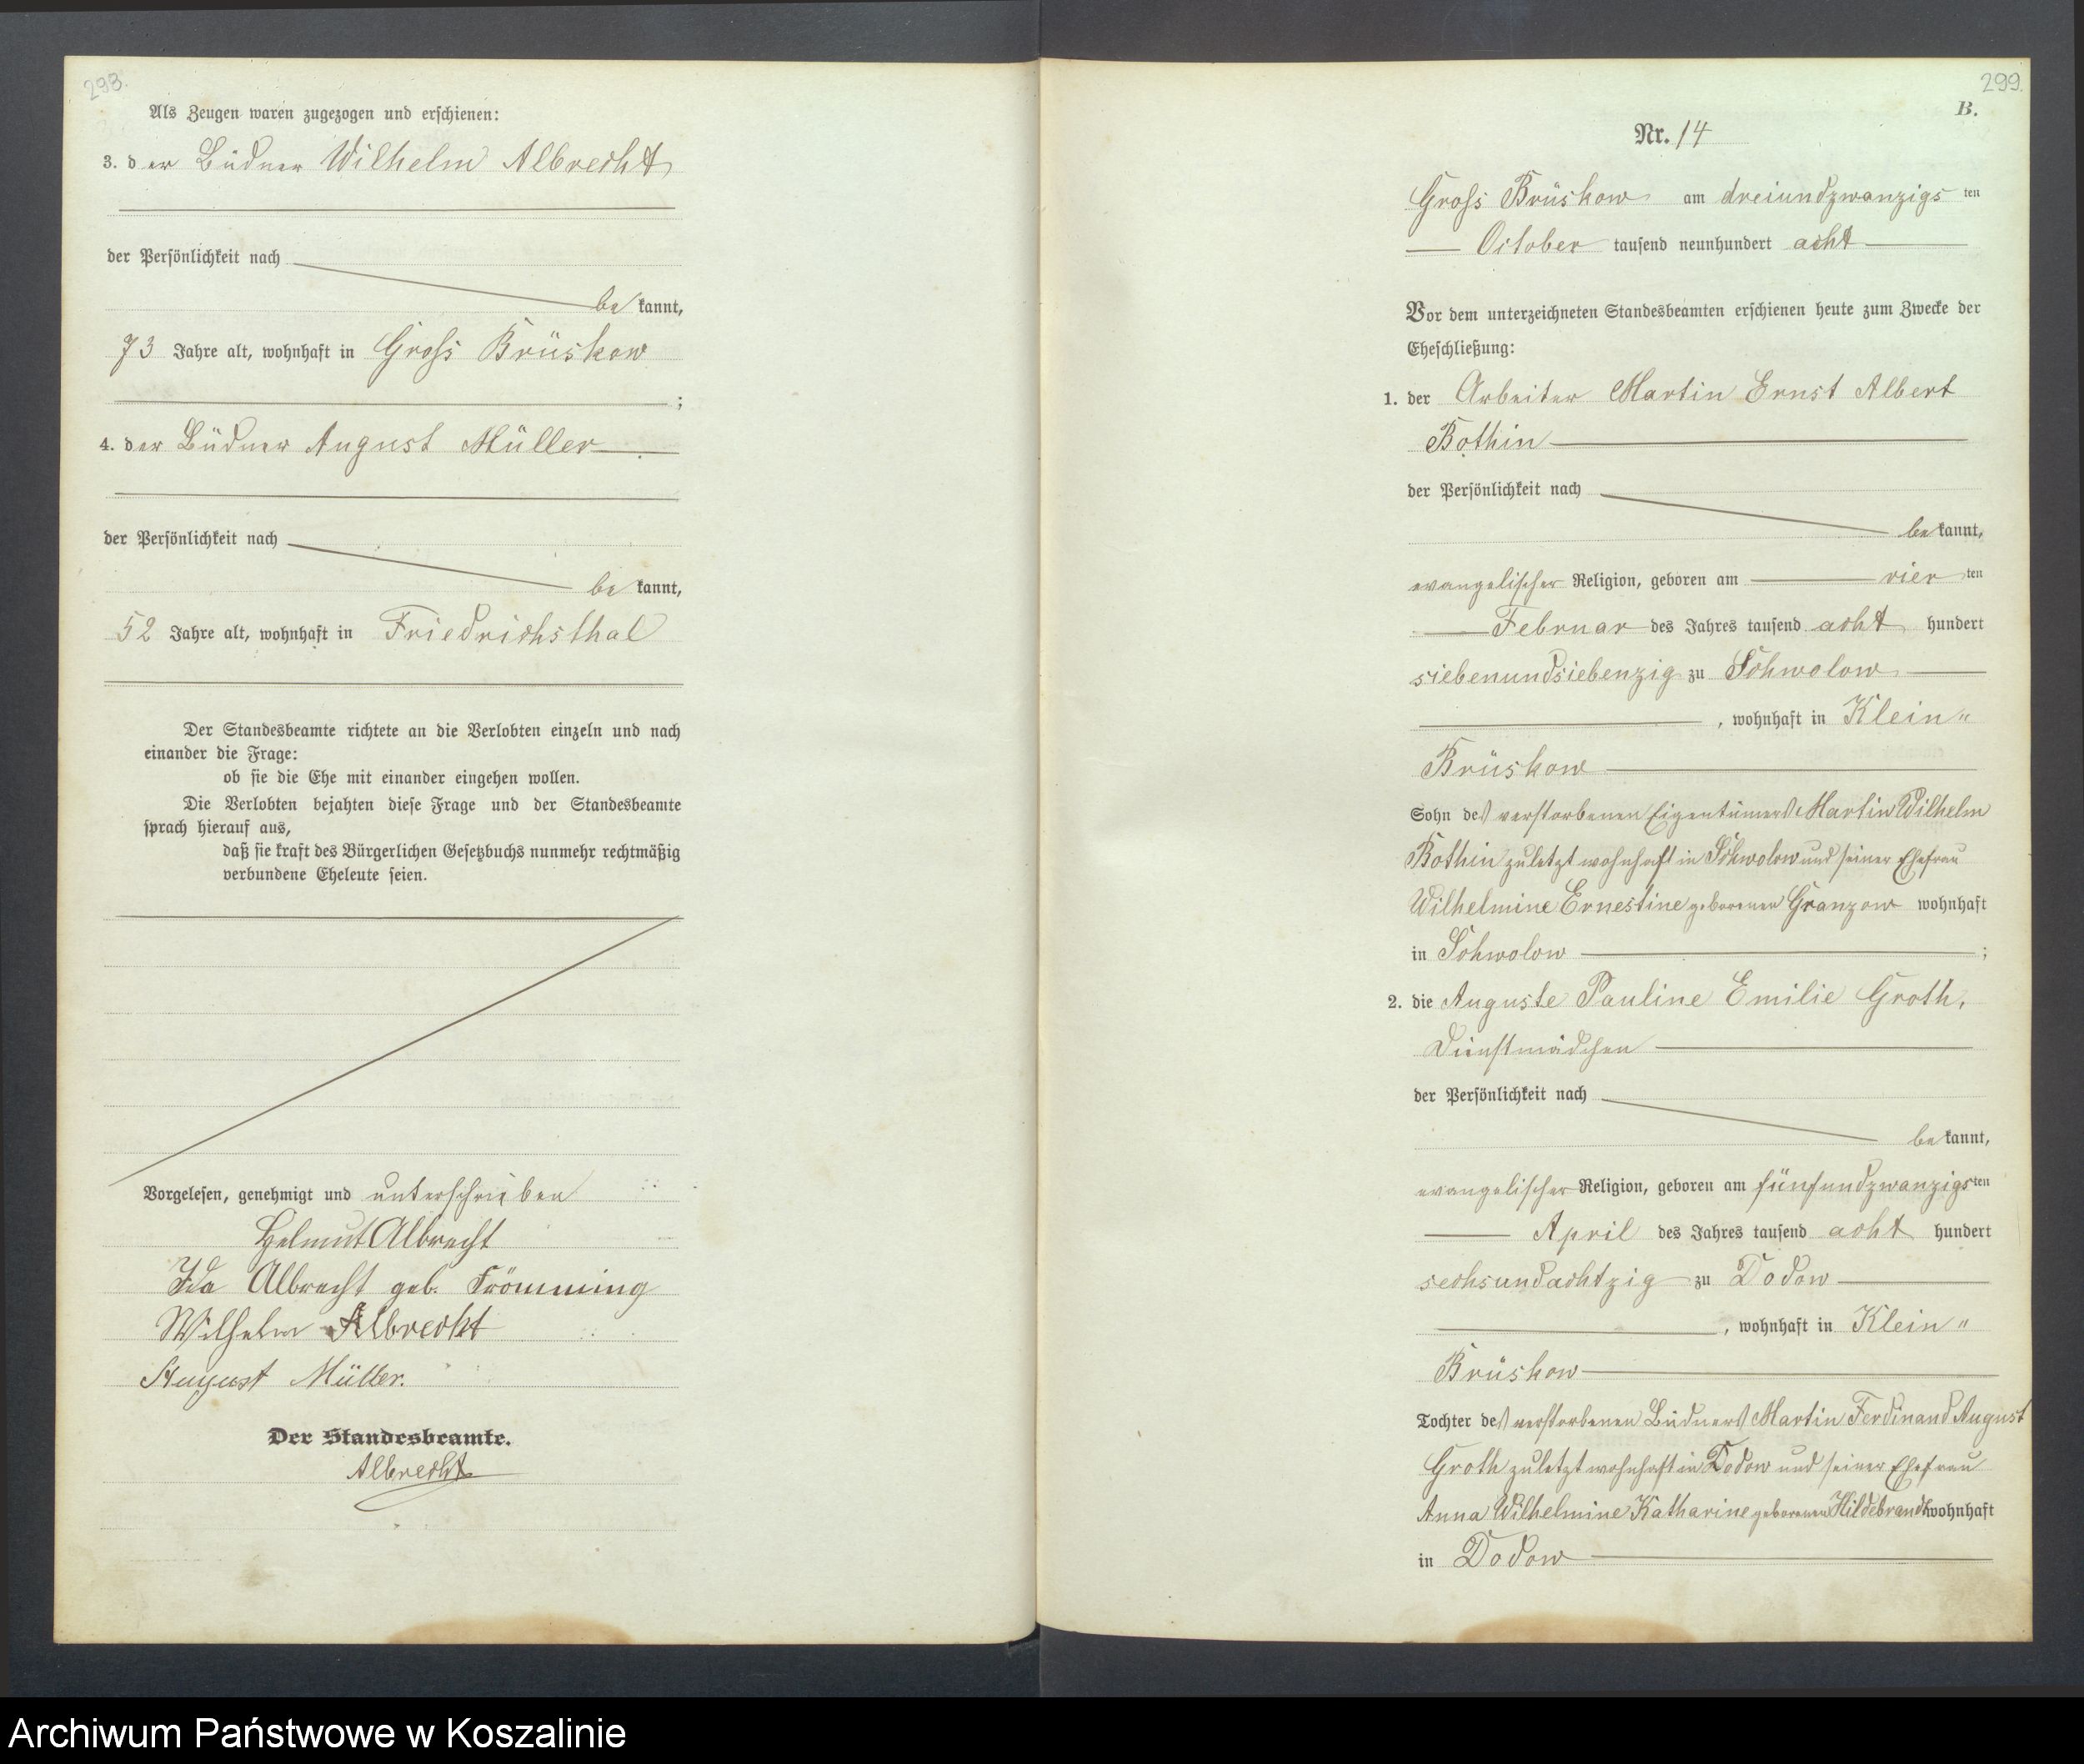 298.
Als Zeugen waren zugezogen und erschienen:
3. der Büdner Wilhelm Albrecht
der Persönlichkeit nach
be kannt,
73 Jahre alt, wohnhaft in Gross Brüskow
;
4. der Büdner August Müller
der Persönlichkeit nach
be kannt,
52 Jahre alt, wohnhaft in Friedrichsthal
Der Standesbeamte richtete an die Verlobten einzeln und nach
einander die Frage:
ob sie die Ehe mit einander eingehen wollen.
Die Verlobten bejahten diese Frage und der Standesbeamte
sprach hierauf aus,
daß sie kraft des Bürgerlichen Gesetzbuchs nunmehr rechtmäßig
verbundene Eheleute seien.
Vorgelesen, genehmigt und unterschrieben
Helmut Albrecht
Ida Albrecht geb. Frömming
Wilhelm Albrecht
August Müller.
Der Standesbeamte.
Albrecht
299.
B.
Nr. 14
Gross Brüskow am dreiundzwanzigs ten
October tausend neunhundert acht
Vor dem unterzeichneten Standesbeamten erschienen heute zum Zwecke der
Eheschließung:
1. der Arbeiter Martin Ernst Albert
Bothin
der Persönlichkeit nach
be kannt,
evangelischer Religion, geboren am vier ten
Februar des Jahres tausend acht hundert
siebenundsiebenzig zu Schwolow
, wohnhaft in Klein "
Brüskow
Sohn des verstorbenen Eigentümers Martin Wilhelm
Bothin zuletzt wohnhaft in Schwolow und seiner Ehefrau
Wilhelmine Ernestine geborenen Granzow wohnhaft
in Schwolow ;
2. die Auguste Pauline Emilie Groth,
Dienstmädchen
der Persönlichkeit nach
be kannt,
evangelischer Religion, geboren am fünfundzwanzigsten
April des Jahres tausend acht hundert
sechsundachtzig zu Dodow
, wohnhaft in Klein "
Brüskow
Tochter des verstorbenen Büdners Martin Ferdinand August
Groth zuletzt wohnhaft in Dodow und seiner Ehefrau
Anna Wilhelmine Katharine geborenen Hildebrandt wohnhaft
in Dodow
Archiwum Państwowe w Koszalinie